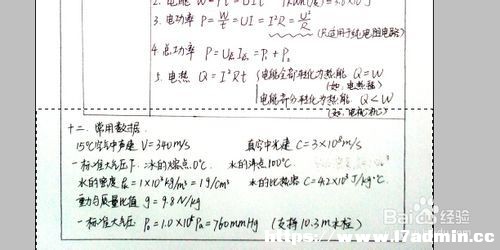 2. 电能 W=Pt=UIt
3. 电功率 P=W/t=UI=I²R=U²/R
(只适用于纯电阻电路)
4. 总功率 P=U总I总=P₁+P₂
5. 电热 Q=I²Rt {电能全部转化为热能 Q=W
(如,电热器)
电能部分转化为热能 Q<W
(如,电动机)
十二、常用数据
15℃空气中声速 V=340m/s 真空中光速 C=3×10⁸m/s
一标准大气压下:冰的熔点0℃ 水的沸点100℃
水的密度 ρ水=1×10³kg/m³=1g/cm³ 水的比热容 C=4.2×10³J/kg·℃
重力与质量比值 g=9.8N/kg
一标准大气压 P₀=1.0×10⁵Pa=760mmHg (支持10.3m水柱)
Baidu经验
https://www.17admin.cc